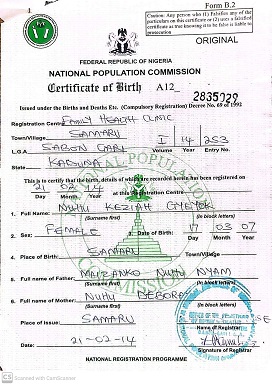 Form B.2
Caution: Any person who (1) Falsifies any of the
particulars on this certificate or (2) uses a falsified
certificate as true knowing it to be false is liable to
prosecution
ORIGINAL
FEDERAL REPUBLIC OF NIGERIA
NATIONAL POPULATION COMMISSION
Certificate of Birth A12 2835029
Issued under the Births and Deaths Etc. (Compulsory Registration) Decree No. 69 of 1992
Registration Centre FAMILY HEALTH CLINIC
Town/Village SAMARU I 14 253
L.G.A SABON GARI Year Volume Entry No.
State KADUNA
This is to certify that the birth, details of which are recorded herein has been registered on
21 02 14 at this Registration Centre
Day Month Year
1. Full Name: NUHU KEZIAH
(Surname first) (in block letters)
2. Sex: FEMALE 3. Date of Birth: 17 03 07
Day Month Year
4. Place of Birth: SAMARU
Town/Village
5. Full name of Father: MAIZANKO NUHU NYAM
(Surname first) (In block letters)
6. Full name of Mother: NUHU DEBORAH
(Surname first) (In block letters)
Place of issue: SAMARU
Name of Registrar
Date: 21-02-14
Signature of Registrar
NATIONAL REGISTRATION PROGRAMME
CS Scanned with CamScanner